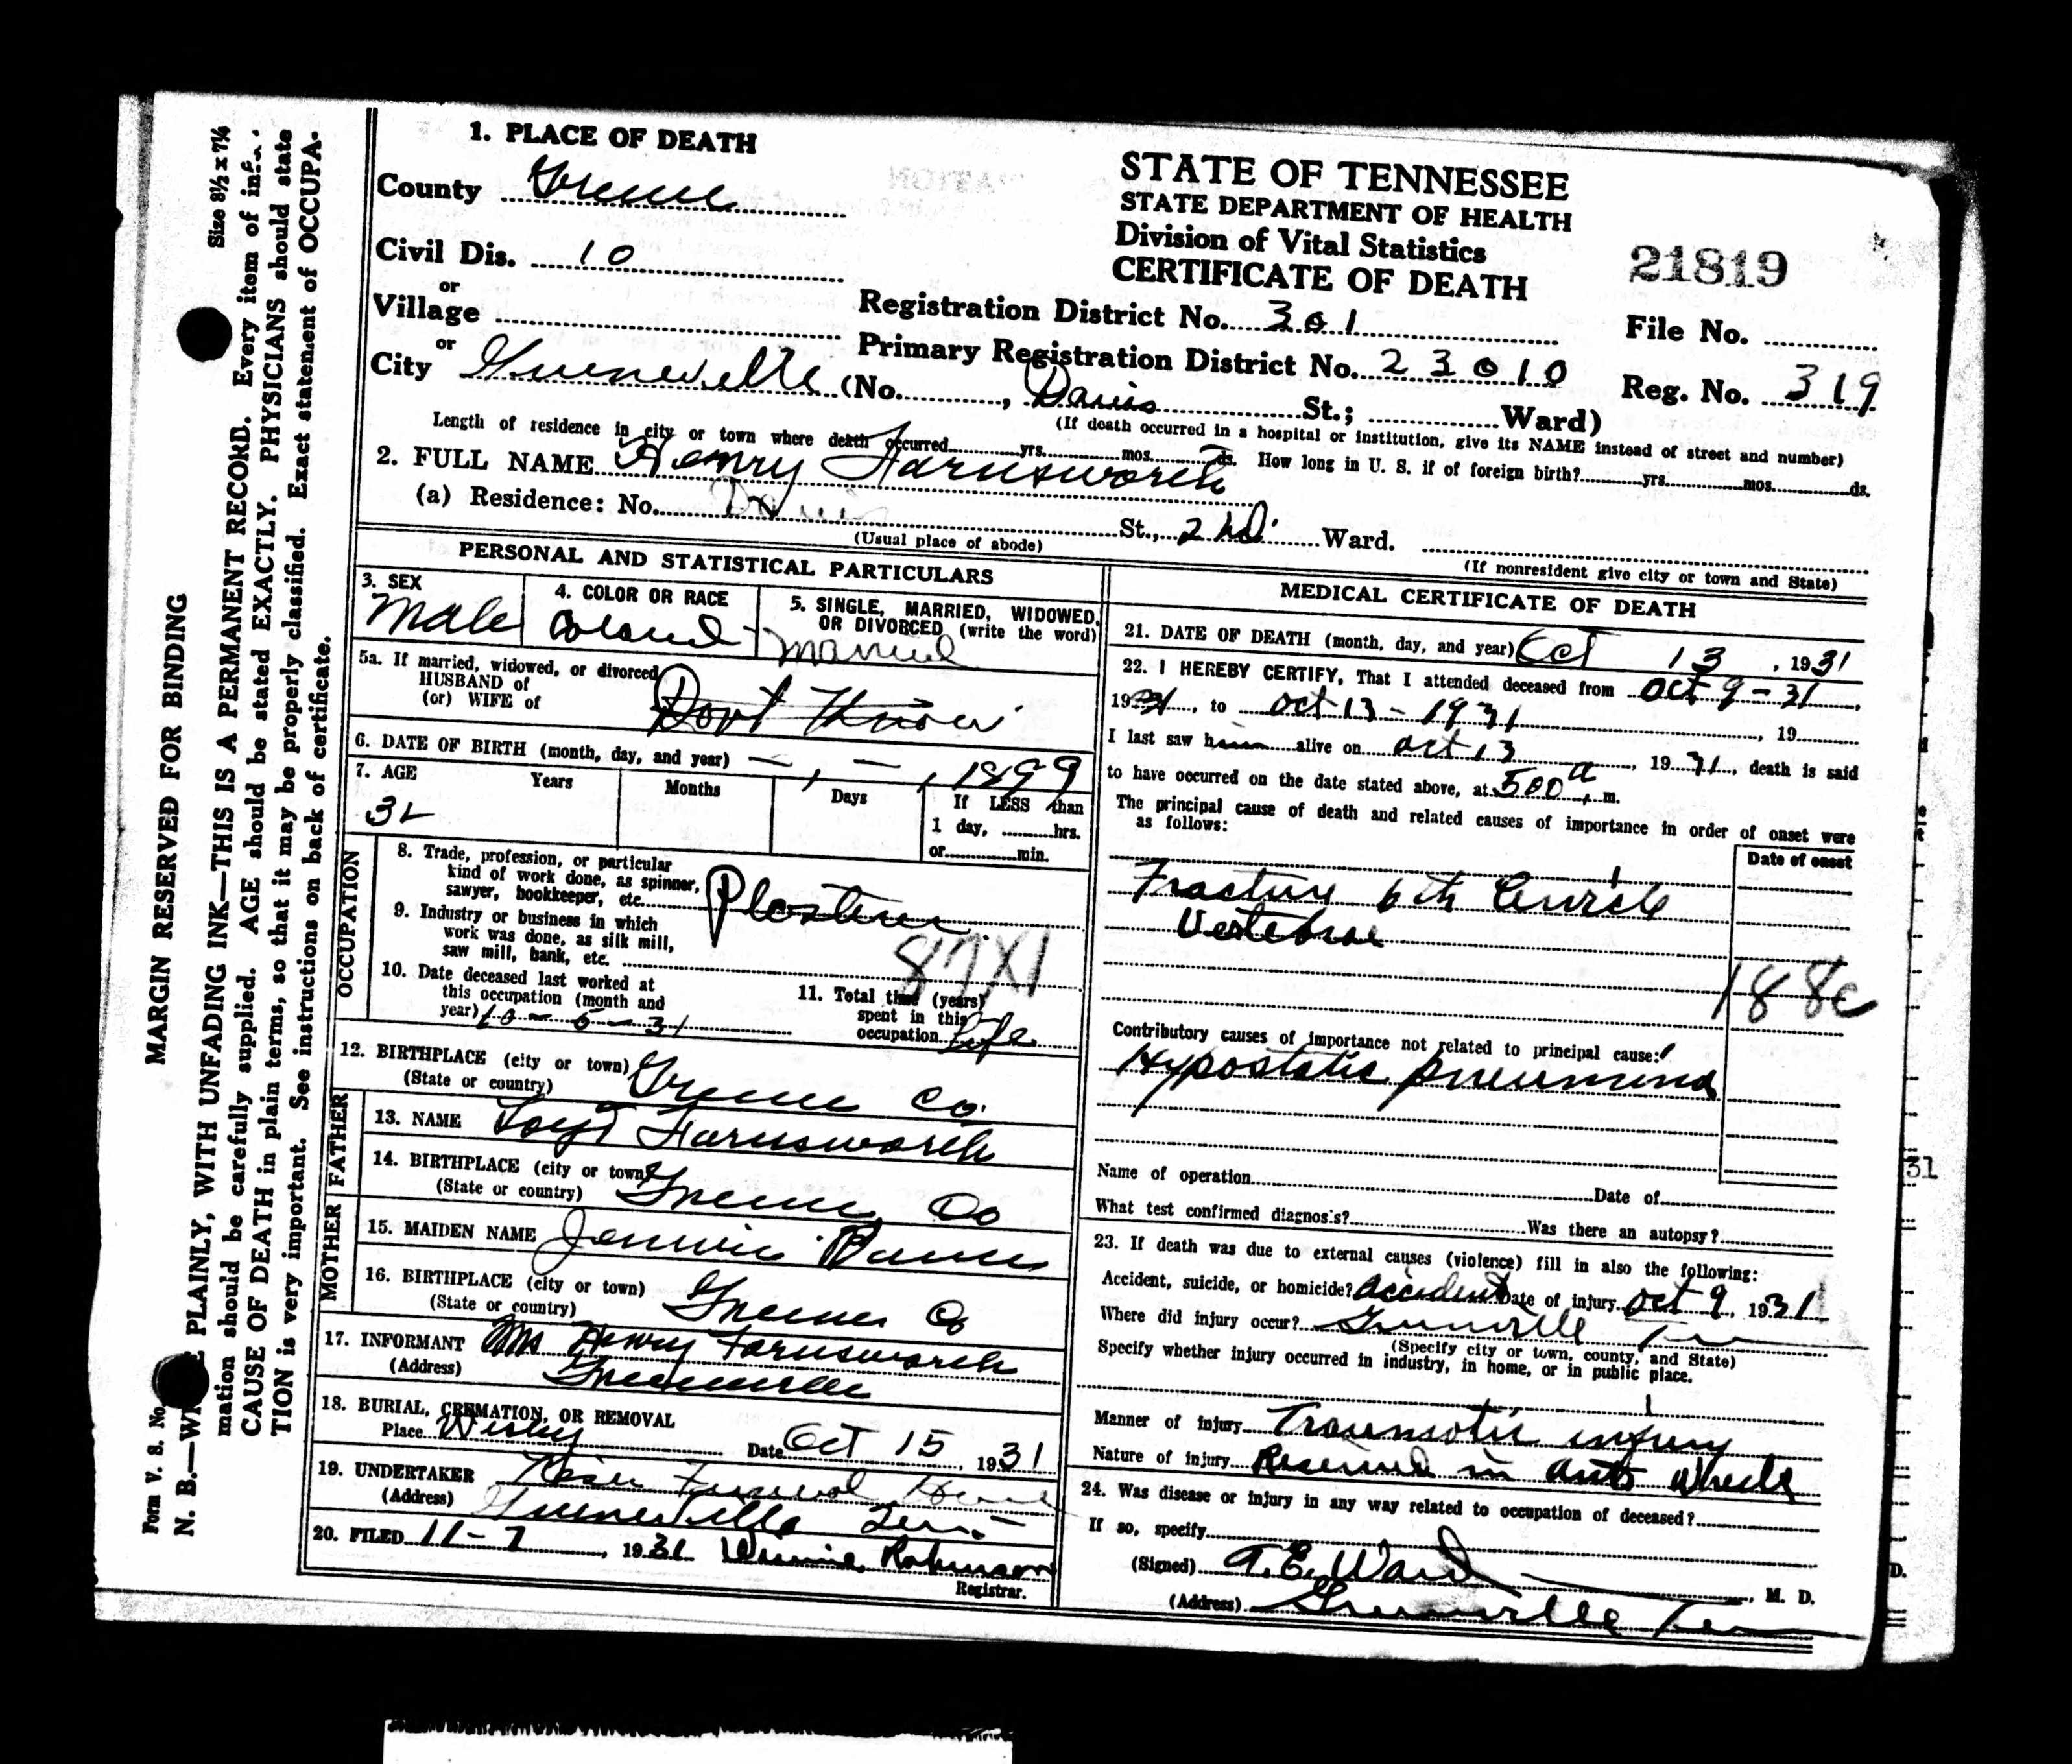 1. PLACE OF DEATH
County Greene
Civil Dis. 10
or
Village
or
City Greeneville (No. , Davis St.; Ward)
STATE OF TENNESSEE
STATE DEPARTMENT OF HEALTH
Division of Vital Statistics
CERTIFICATE OF DEATH
21819
Registration District No. 301 File No.
Primary Registration District No. 23010 Reg. No. 319
(If death occurred in a hospital or institution, give its NAME instead of street and number)
Length of residence in city or town where death occurred yrs. mos. ds. How long in U. S. if of foreign birth? yrs. mos. ds.
2. FULL NAME Henry Farnsworth
(a) Residence: No. Davis St., 2nd Ward.
(Usual place of abode) (If nonresident give city or town and State)
PERSONAL AND STATISTICAL PARTICULARS
3. SEX
Male
4. COLOR OR RACE
Colored
5. SINGLE, MARRIED, WIDOWED,
OR DIVORCED (write the word)
Married
5a. If married, widowed, or divorced
HUSBAND of
(or) WIFE of
Dont Know
6. DATE OF BIRTH (month, day, and year) — , — , 1899
7. AGE Years Months Days If LESS than
32 1 day, hrs.
or min.
OCCUPATION
8. Trade, profession, or particular
kind of work done, as spinner,
sawyer, bookkeeper, etc.
9. Industry or business in which
work was done, as silk mill,
saw mill, bank, etc.
87X1
10. Date deceased last worked at
this occupation (month and
year) 10-5-31
11. Total time (years)
spent in this
occupation Life
12. BIRTHPLACE (city or town) Greene Co.
(State or country)
FATHER
13. NAME Loyd Farnsworth
14. BIRTHPLACE (city or town) Greene Co
(State or country)
MOTHER
15. MAIDEN NAME Jennie
16. BIRTHPLACE (city or town) Greene Co
(State or country)
17. INFORMANT Mrs Henry Farnsworth
(Address) Greeneville
18. BURIAL, CREMATION, OR REMOVAL
Place Wesley Date Oct 15, 1931
19. UNDERTAKER Kiser Funeral Home
(Address) Greeneville Ten.
20. FILED 11-7, 1931 Winnie Robinson
Registrar.
MEDICAL CERTIFICATE OF DEATH
21. DATE OF DEATH (month, day, and year) Oct 13, 1931
22. I HEREBY CERTIFY, That I attended deceased from Oct 9-31
1931, to Oct 13-1931, 19
I last saw him alive on Oct 13, 1931, death is said
to have occurred on the date stated above, at 500 a.m.
The principal cause of death and related causes of importance in order of onset were
as follows:
Date of onset
Fracture 6th
Vertebrae
188c
Contributory causes of importance not related to principal cause:
Hypostatic pneumonia
Name of operation Date of
What test confirmed diagnosis? Was there an autopsy?
23. If death was due to external causes (violence) fill in also the following:
Accident, suicide, or homicide? accident Date of injury Oct 9, 1931
Where did injury occur? Greeneville Ten
(Specify city or town, county, and State)
Specify whether injury occurred in industry, in home, or in public place.
Manner of injury Traumatic injury
Nature of injury Received in auto
24. Was disease or injury in any way related to occupation of deceased?
If so, specify
(Signed) , M. D.
(Address) Greeneville Ten
31
D.
MARGIN RESERVED FOR BINDING
Form V. S. No. Size 8½ x 7¼
N. B.—WRITE PLAINLY, WITH UNFADING INK—THIS IS A PERMANENT RECORD. Every item of infor-
mation should be carefully supplied. AGE should be stated EXACTLY. PHYSICIANS should state
CAUSE OF DEATH in plain terms, so that it may be properly classified. Exact statement of OCCUPA-
TION is very important. See instructions on back of certificate.